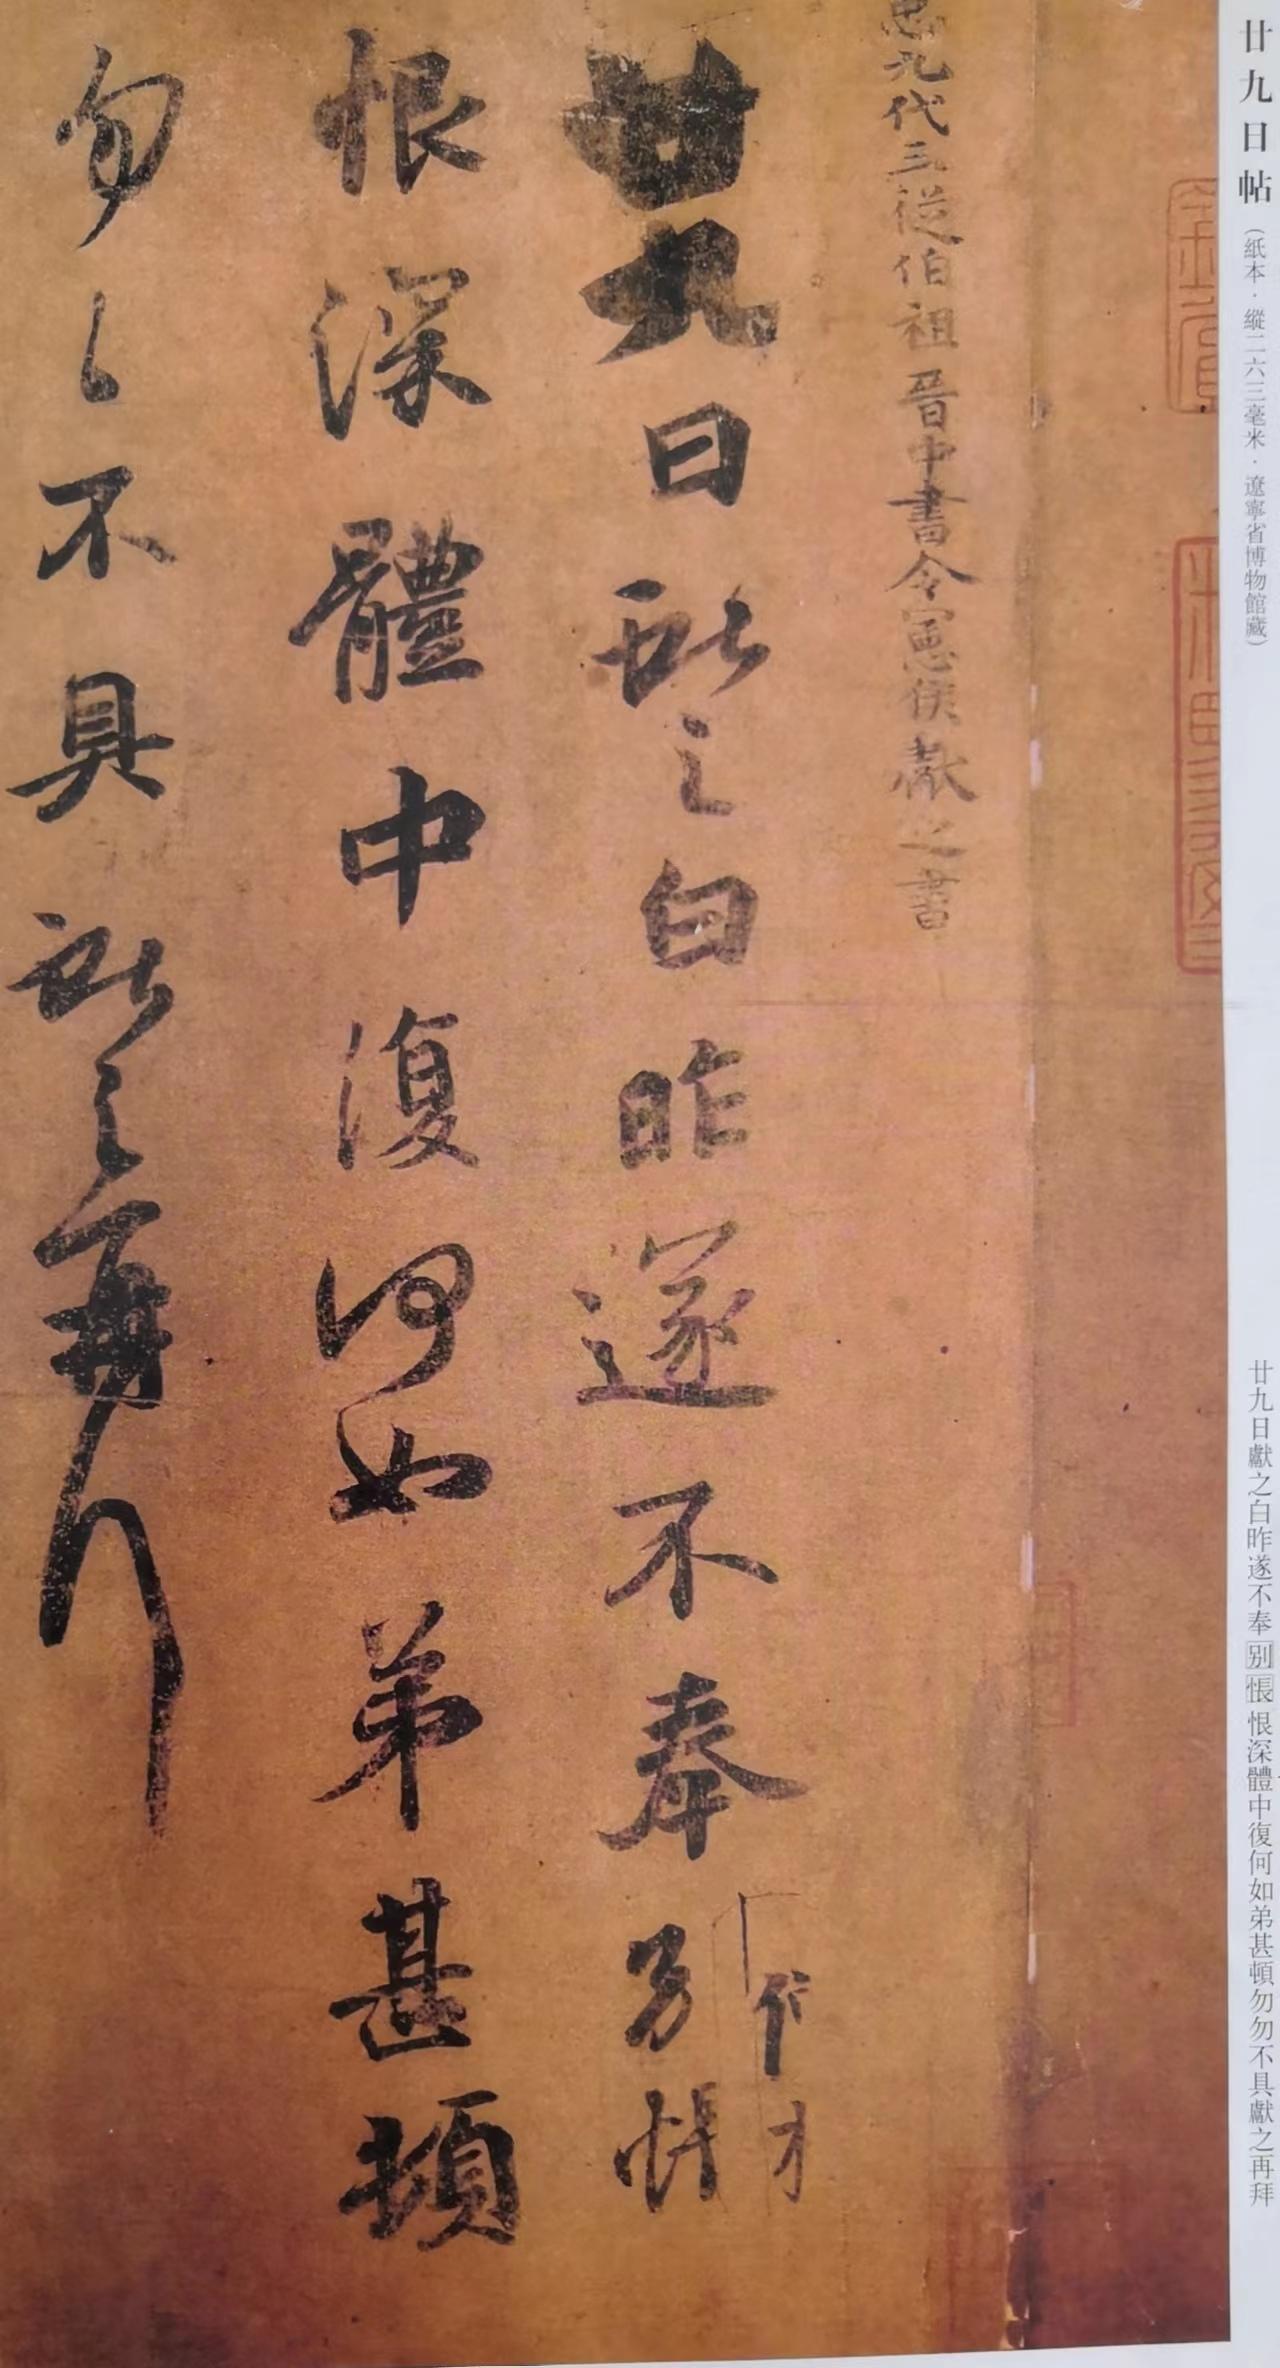 廿九日帖（紙本·縱二六三毫米·遼寧省博物館藏）
廿九日獻之白昨遂不奉别悵恨深體中復何如弟甚頓勿勿不具獻之再拜
九代三從伯祖晉中書令憲侯獻之書
廿九日獻之白昨遂不奉别悵
恨深體中復何如弟甚頓
勿〻不具獻之再拜